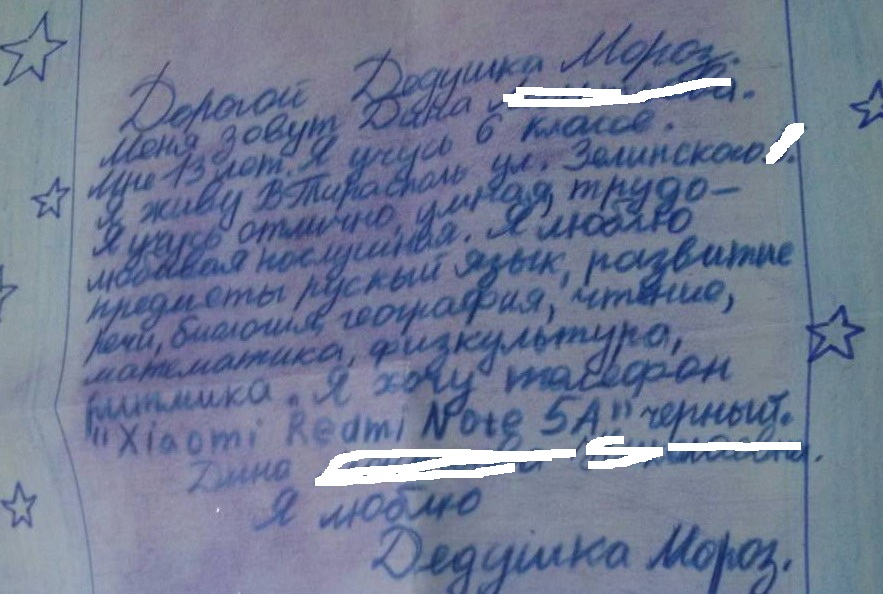 Дорогой Дедушка Мороз.
Меня зовут Дяна
Мне 13 лет. Я учусь 6 классе.
Я живу В Тирасполь ул. Зелинского
Я учусь отлично, умная, трудо-
любивая послушная. Я люблю
предметы руский язык, развитие
речи, биология, география, чтение,
математика, физкультура,
ритмика. Я хочу телефон
"Xiaomi Redmi Note 5A" черный.
Дяна
Я люблю
Дедушка Мороз.